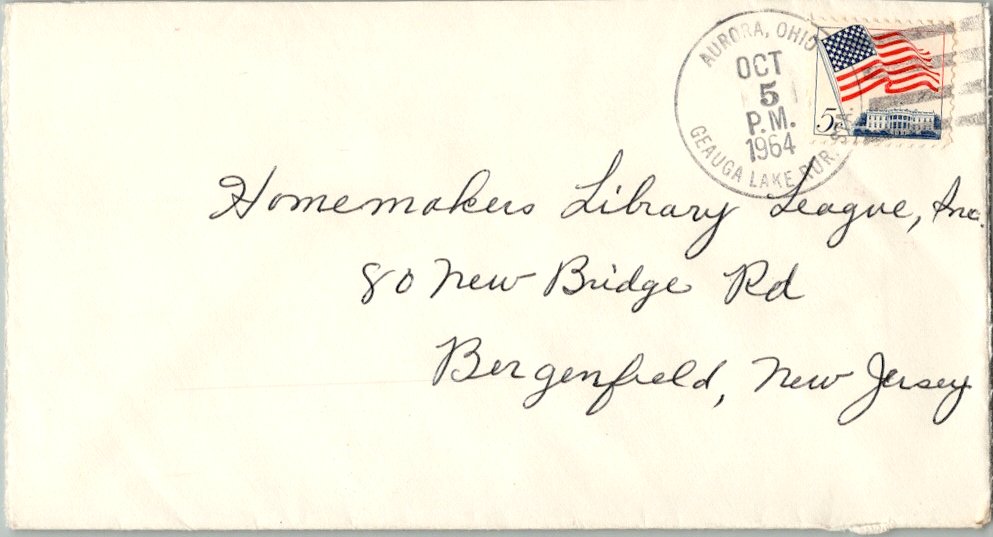 AURORA, OHIO
OCT
5
P.M.
1964
GEAUGA LAKE RUR. STA.
5¢
Homemakers Library League, Inc.
80 New Bridge Rd
Bergenfield, New Jersey